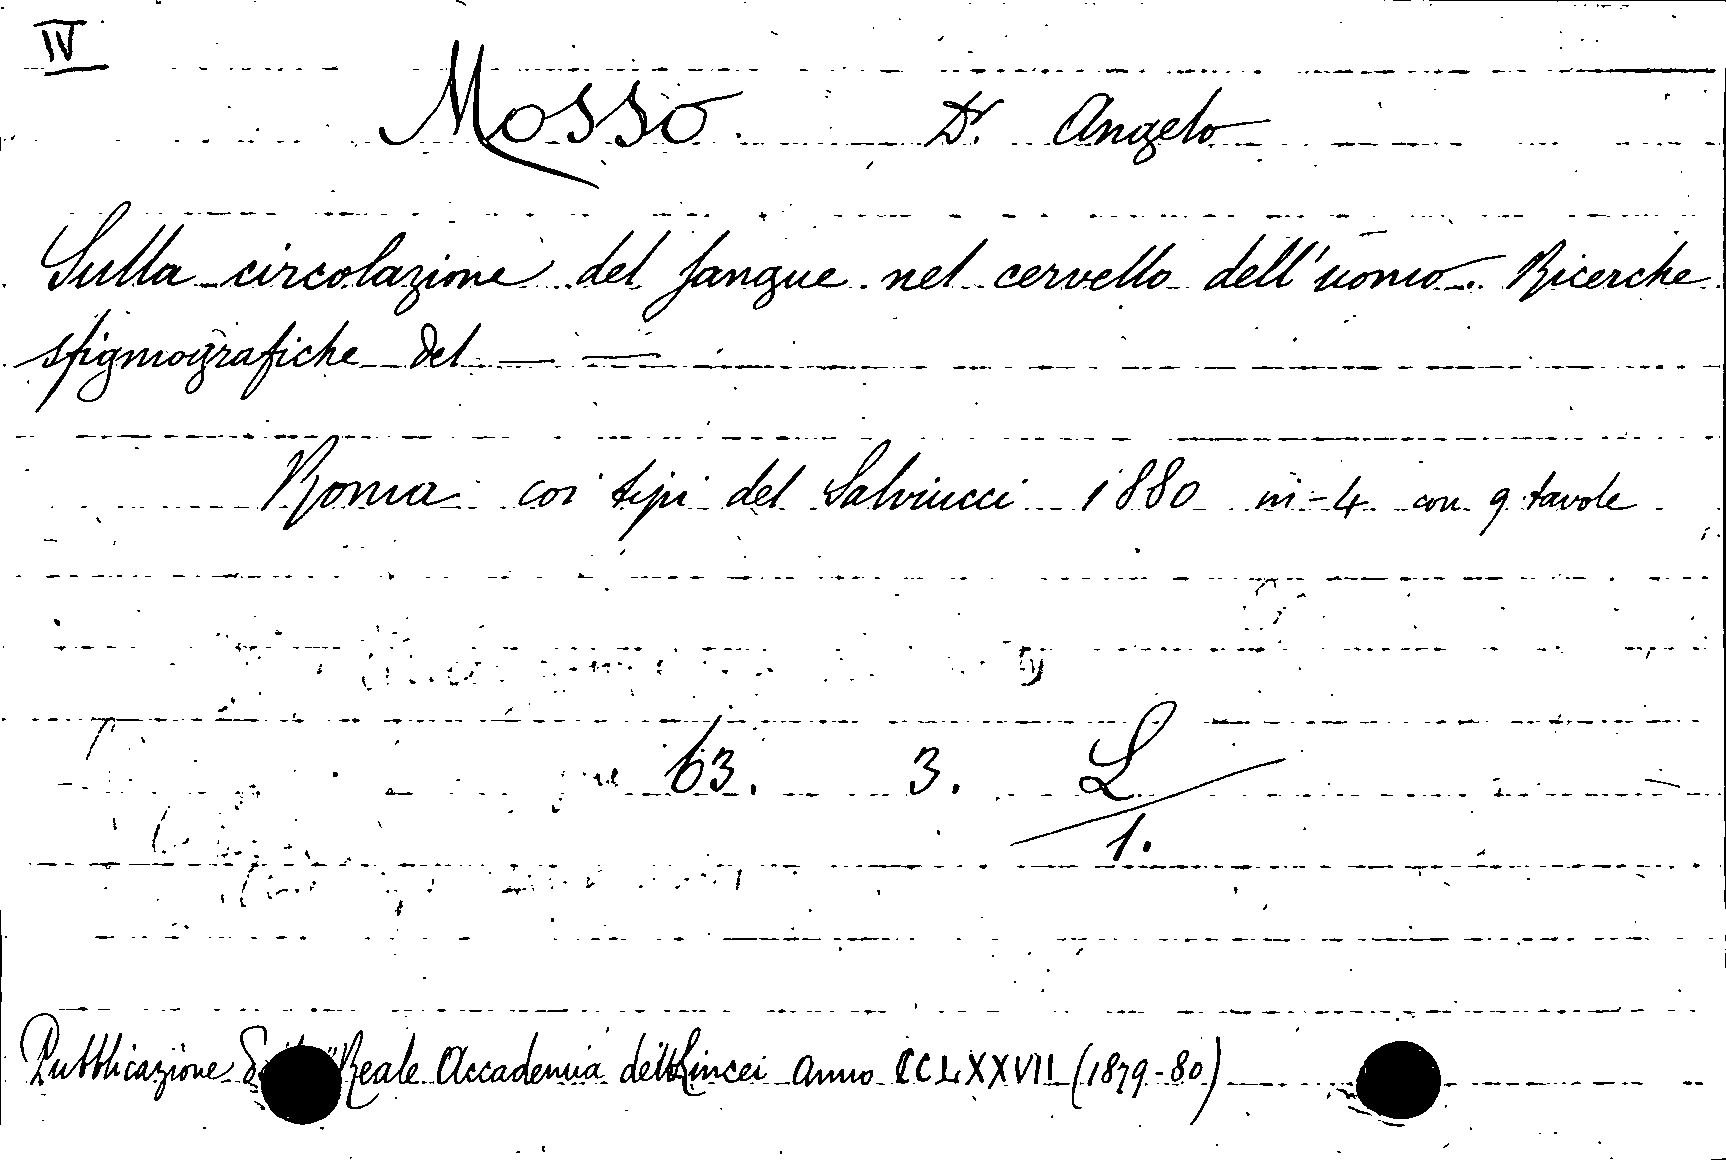 IV
Mosso. Dr. Angelo
Sulla circolazione del sangue nel cervello dell'uomo. Ricerche
sfigmografiche del — —
Roma coi tipi del Salviucci 1880 in-4 con 9 tavole
63. 3. L/1.
Pubblicazione Reale Accademia dei Lincei anno CCLXXVII (1879-80)